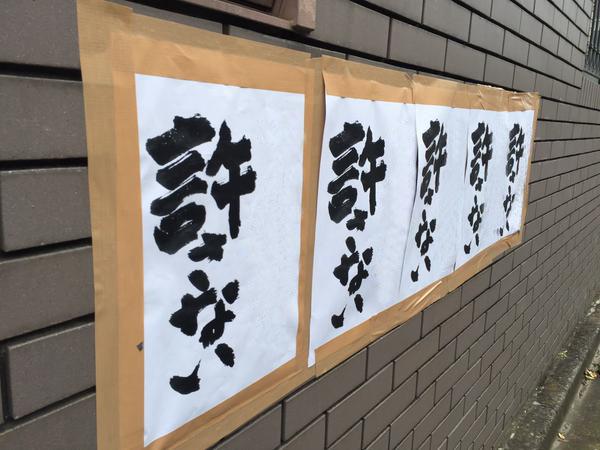 許さない
許さない
許さない
許さない
許さない